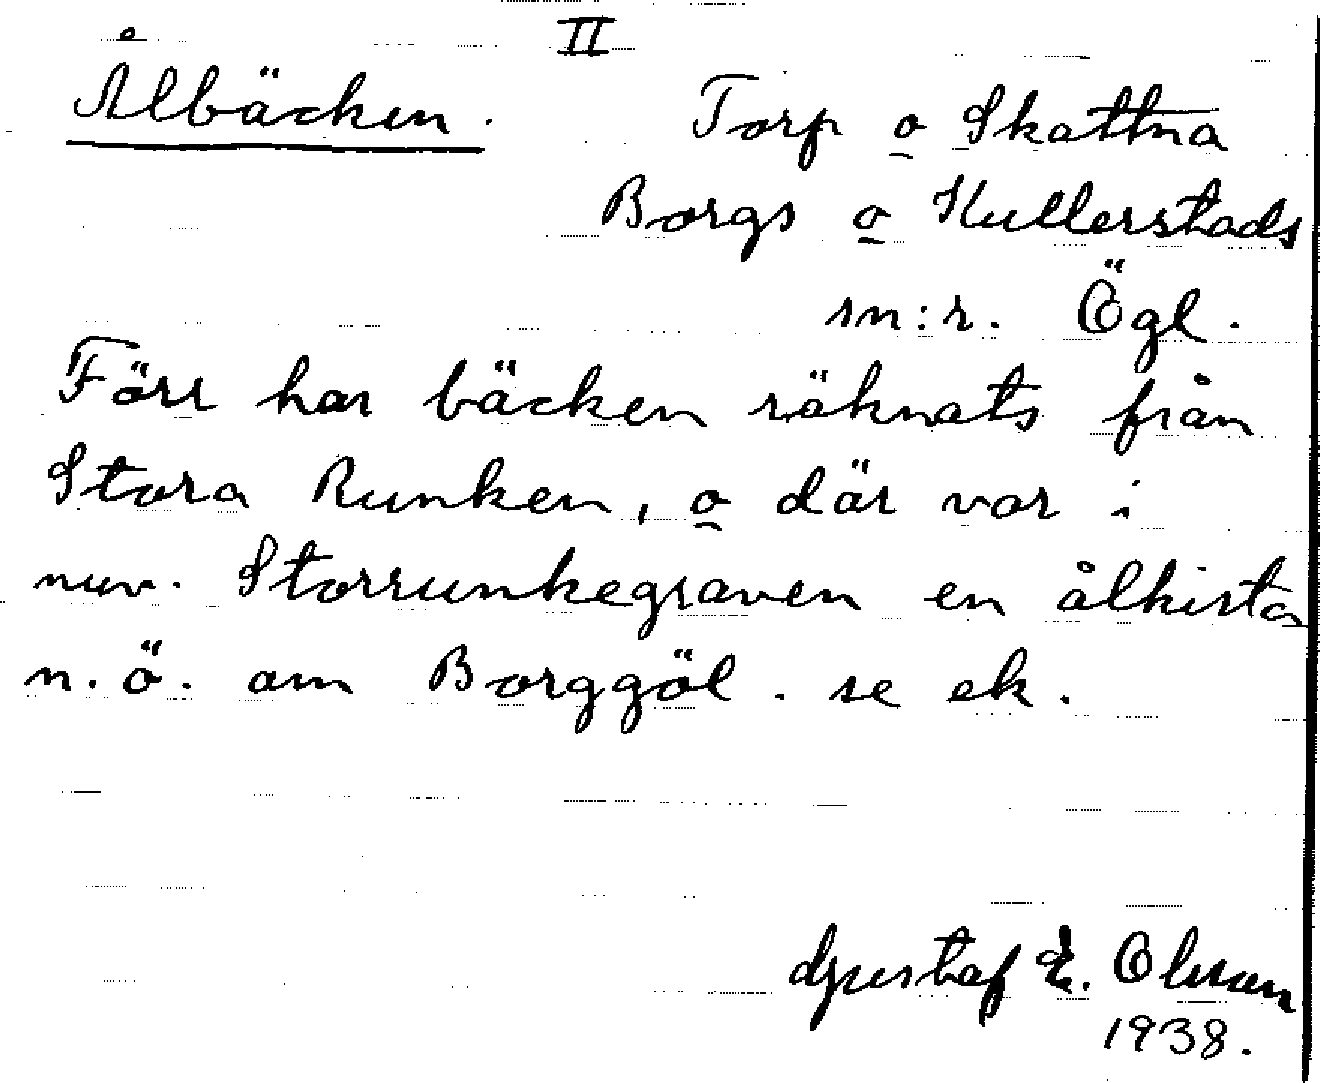 II
Ålbäcken.
Torp o Skattna
Borgs o Kullerstads
sn:r. Ögl.
Förr har bäcken räknats från
Stora Runken, o där var i
nuv. Storrunkegraven en ålkista
n.ö. om Borggöl. se ek.
Gustaf E. Olsson
1938.